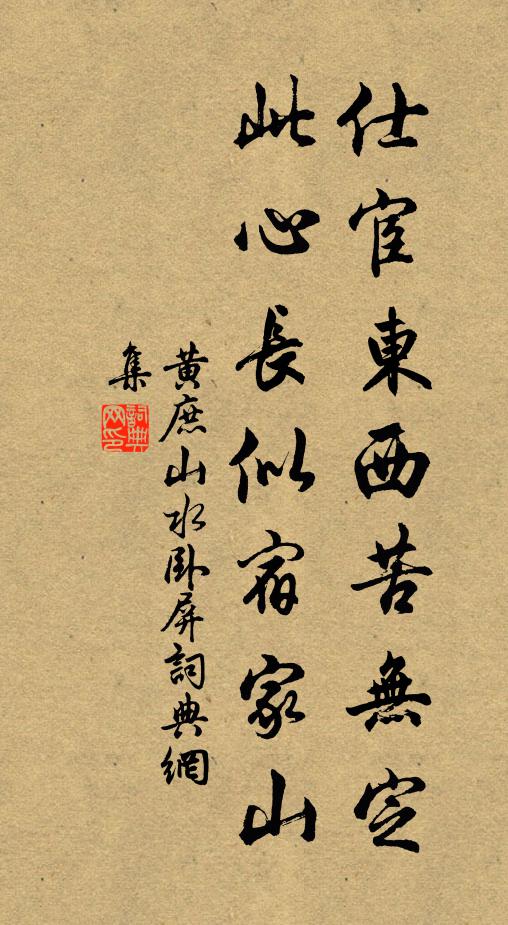 仕宦東西苦無定
此心長似宿家山
黃庶山水卧屏詞典網
集
詞典
网印